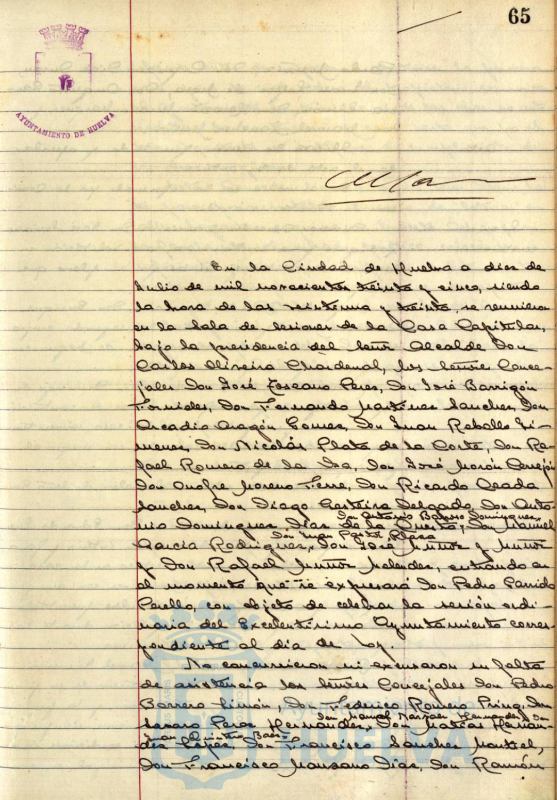 65
AYUNTAMIENTO DE HUELVA
En la Ciudad de Huelva a diez de
Julio de mil novecientos treinta y cinco, siendo
la hora de las veintiuna y treinta, se reunieron
en la Sala de sesiones de la Casa Capitular,
bajo la presidencia del Señor Alcalde Don
Carlos Oliveira Chardenal, los Señores Conce-
jales Don José Toscano Peres, Don José Barrigón
Fornieles, Don Fernando Martínes Sanches, Don
Arcadio Aragón Gomes, Don Juan Rebollo Ji-
menes, Don Nicolás Plata de la Corte, Don Ra-
fael Romero de la Isa, Don José Morón Cerejón
Don Onofre Moreno Ferre, Don Ricardo
Sanches, Don Diego Delgado, Don Anto-
Don Antonio Domingues
nio Domingues Dias de la Don Manuel
Don Juan Pastor
García Rodrigues, Don José Muños y Muños
y Don Rafael Muños entrando en
el momento que se expresará Don Pedro Garrido
Perelló, con objeto de celebrar la sesión ordi-
naria del Excelentísimo Ayuntamiento corres-
pondiente al día de hoy.
No concurrieron ni excusaron su falta
de asistencia los Señores Concejales Don Pedro
Barrero Limón, Don Federico Romero Don
Don Manuel Don
Peres Hernandes, Don Matías Hernan-
Juan Quintero Baez
des Lopes, Don Francisco Sanches
Don Francisco Manzano Dias, Don Ramón
HUELVA